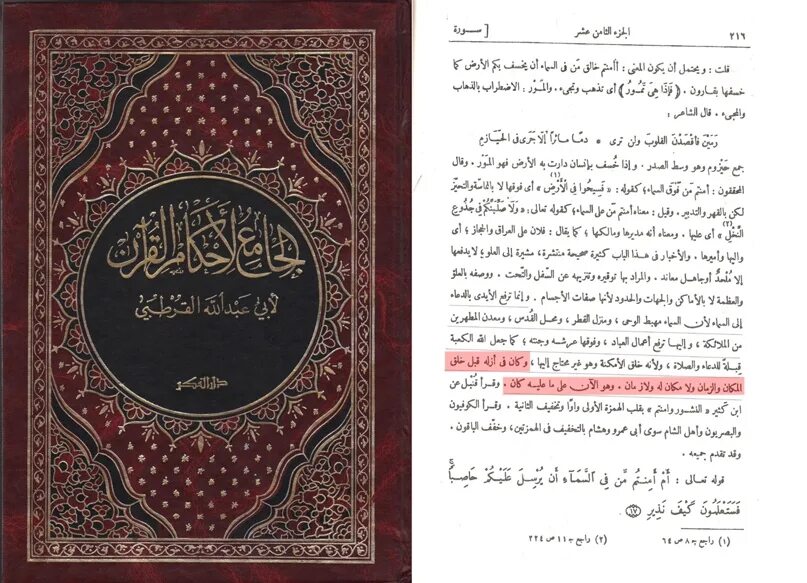 الجامع لأحكام القرآن
لأبي عبدالله القرطبي
دار الفكر
٢١٦
الجزء الثامن عشر
[ سـورة
قلت : ويحتمل أن يكون المعنى : أأمنتم خالق مَن فى السماء أن يخسف بكم الأرض كما
خسفها بقارون . ﴿ فَإِذَا هِىَ تَمُورُ ﴾ أى تذهب وتجىء . والمَوْر : الاضطراب بالذهاب
والمجىء . قال الشاعر :
رَمَيْن فأقصدْنَ القلوبَ ولن ترى * دمًا مائرًا ألّا جرى فى الحيازم
جمع حَيْزوم وهو وسط الصدر . وإذا خُسف بإنسان دارت به الأرض فهو المَوْر . وقال
المحققون : أمنتم مَن فَوْق السماء ؛ كقوله : « فَسِيحُوا فِى الْأَرْضِ (١) » أى فوقها لا بالمماسة والتحيّز
لكن بالقهر والتدبير . وقيل : معناه أمنتم مَن على السماء ؛ كقوله تعالى : « وَلَأُصَلِّبَنَّكُمْ فِى جُذُوعِ
النَّخْلِ (٢) » أى عليها . ومعناه أنه مديرها ومالكها ؛ كما يقال : فلان على العراق والحجاز ؛ أى
واليها وأميرها . والأخبار فى هذا الباب كثيرة صحيحة منتشرة ، مشيرة إلى العلو ؛ لا يدفعها
إلا مُلحد أو جاهل معاند . والمراد بها توقيره وتنزيهه عن السّفل والتّحت . ووصفه بالعلوّ
والعظمة لا بالأماكن والجهات والحدود لأنها صفات الأجسام . وإنما ترفع الأيدى بالدعاء
إلى السماء لأن السماء مهبط الوحى ، ومنزل القطر ، ومحل القُدس ، ومعدن المطهرين
من الملائكة ، وإليها ترفع أعمال العباد ، وفوقها عرشه وجنته ؛ كما جعل الله الكعبة
قبلةً للدعاء والصلاة ، ولأنه خلق الأمكنة وهو غير محتاج إليها ، وكان فى أزله قبل خلق
المكان والزمان ولا مكان له ولا زمان . وهو الآن على ما عليه كان . وقرأ قُنْبل عن
ابن كثير « النشور وامنتم » بقلب الهمزة الأولى واوًا وتخفيف الثانية . وقرأ الكوفيون
والبصريون وأهل الشام سوى أبى عمرو وهشام بالتخفيف فى الهمزتين ، وخفّف الباقون .
وقد تقدم جميعه .
قوله تعالى : أَمْ أَمِنتُم مَّن فِى السَّمَآءِ أَن يُرْسِلَ عَلَيْكُمْ حَاصِبًا
فَسَتَعْلَمُونَ كَيْفَ نَذِيرِ ﴿١٧﴾
(١) راجع جـ ٨ ص ٦٤
(٢) راجع جـ ١١ ص ٢٢٤